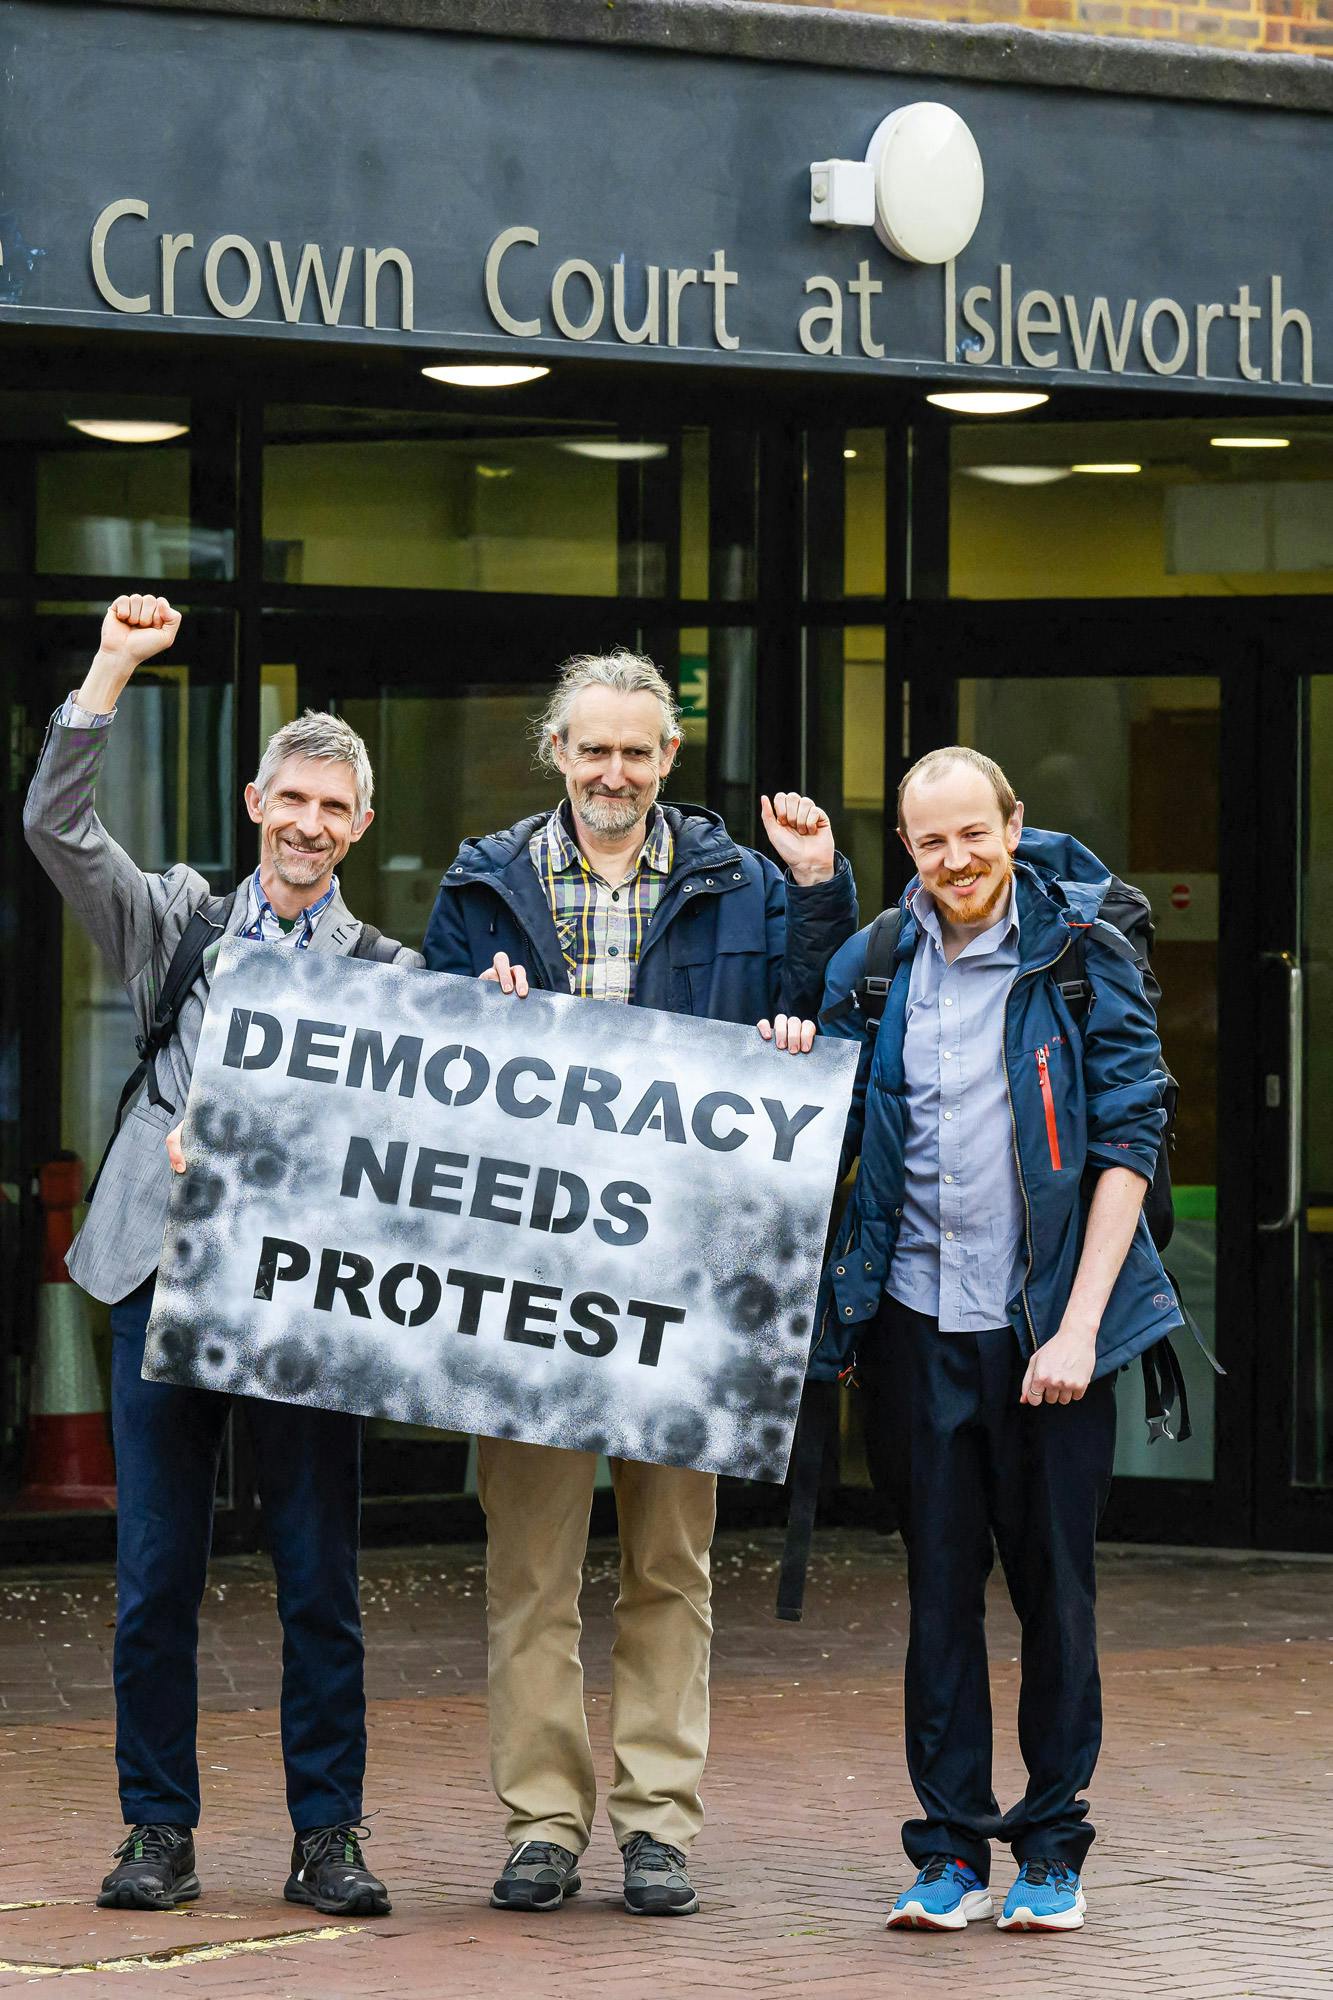 Crown Court at Isleworth
DEMOCRACY
NEEDS
PROTEST